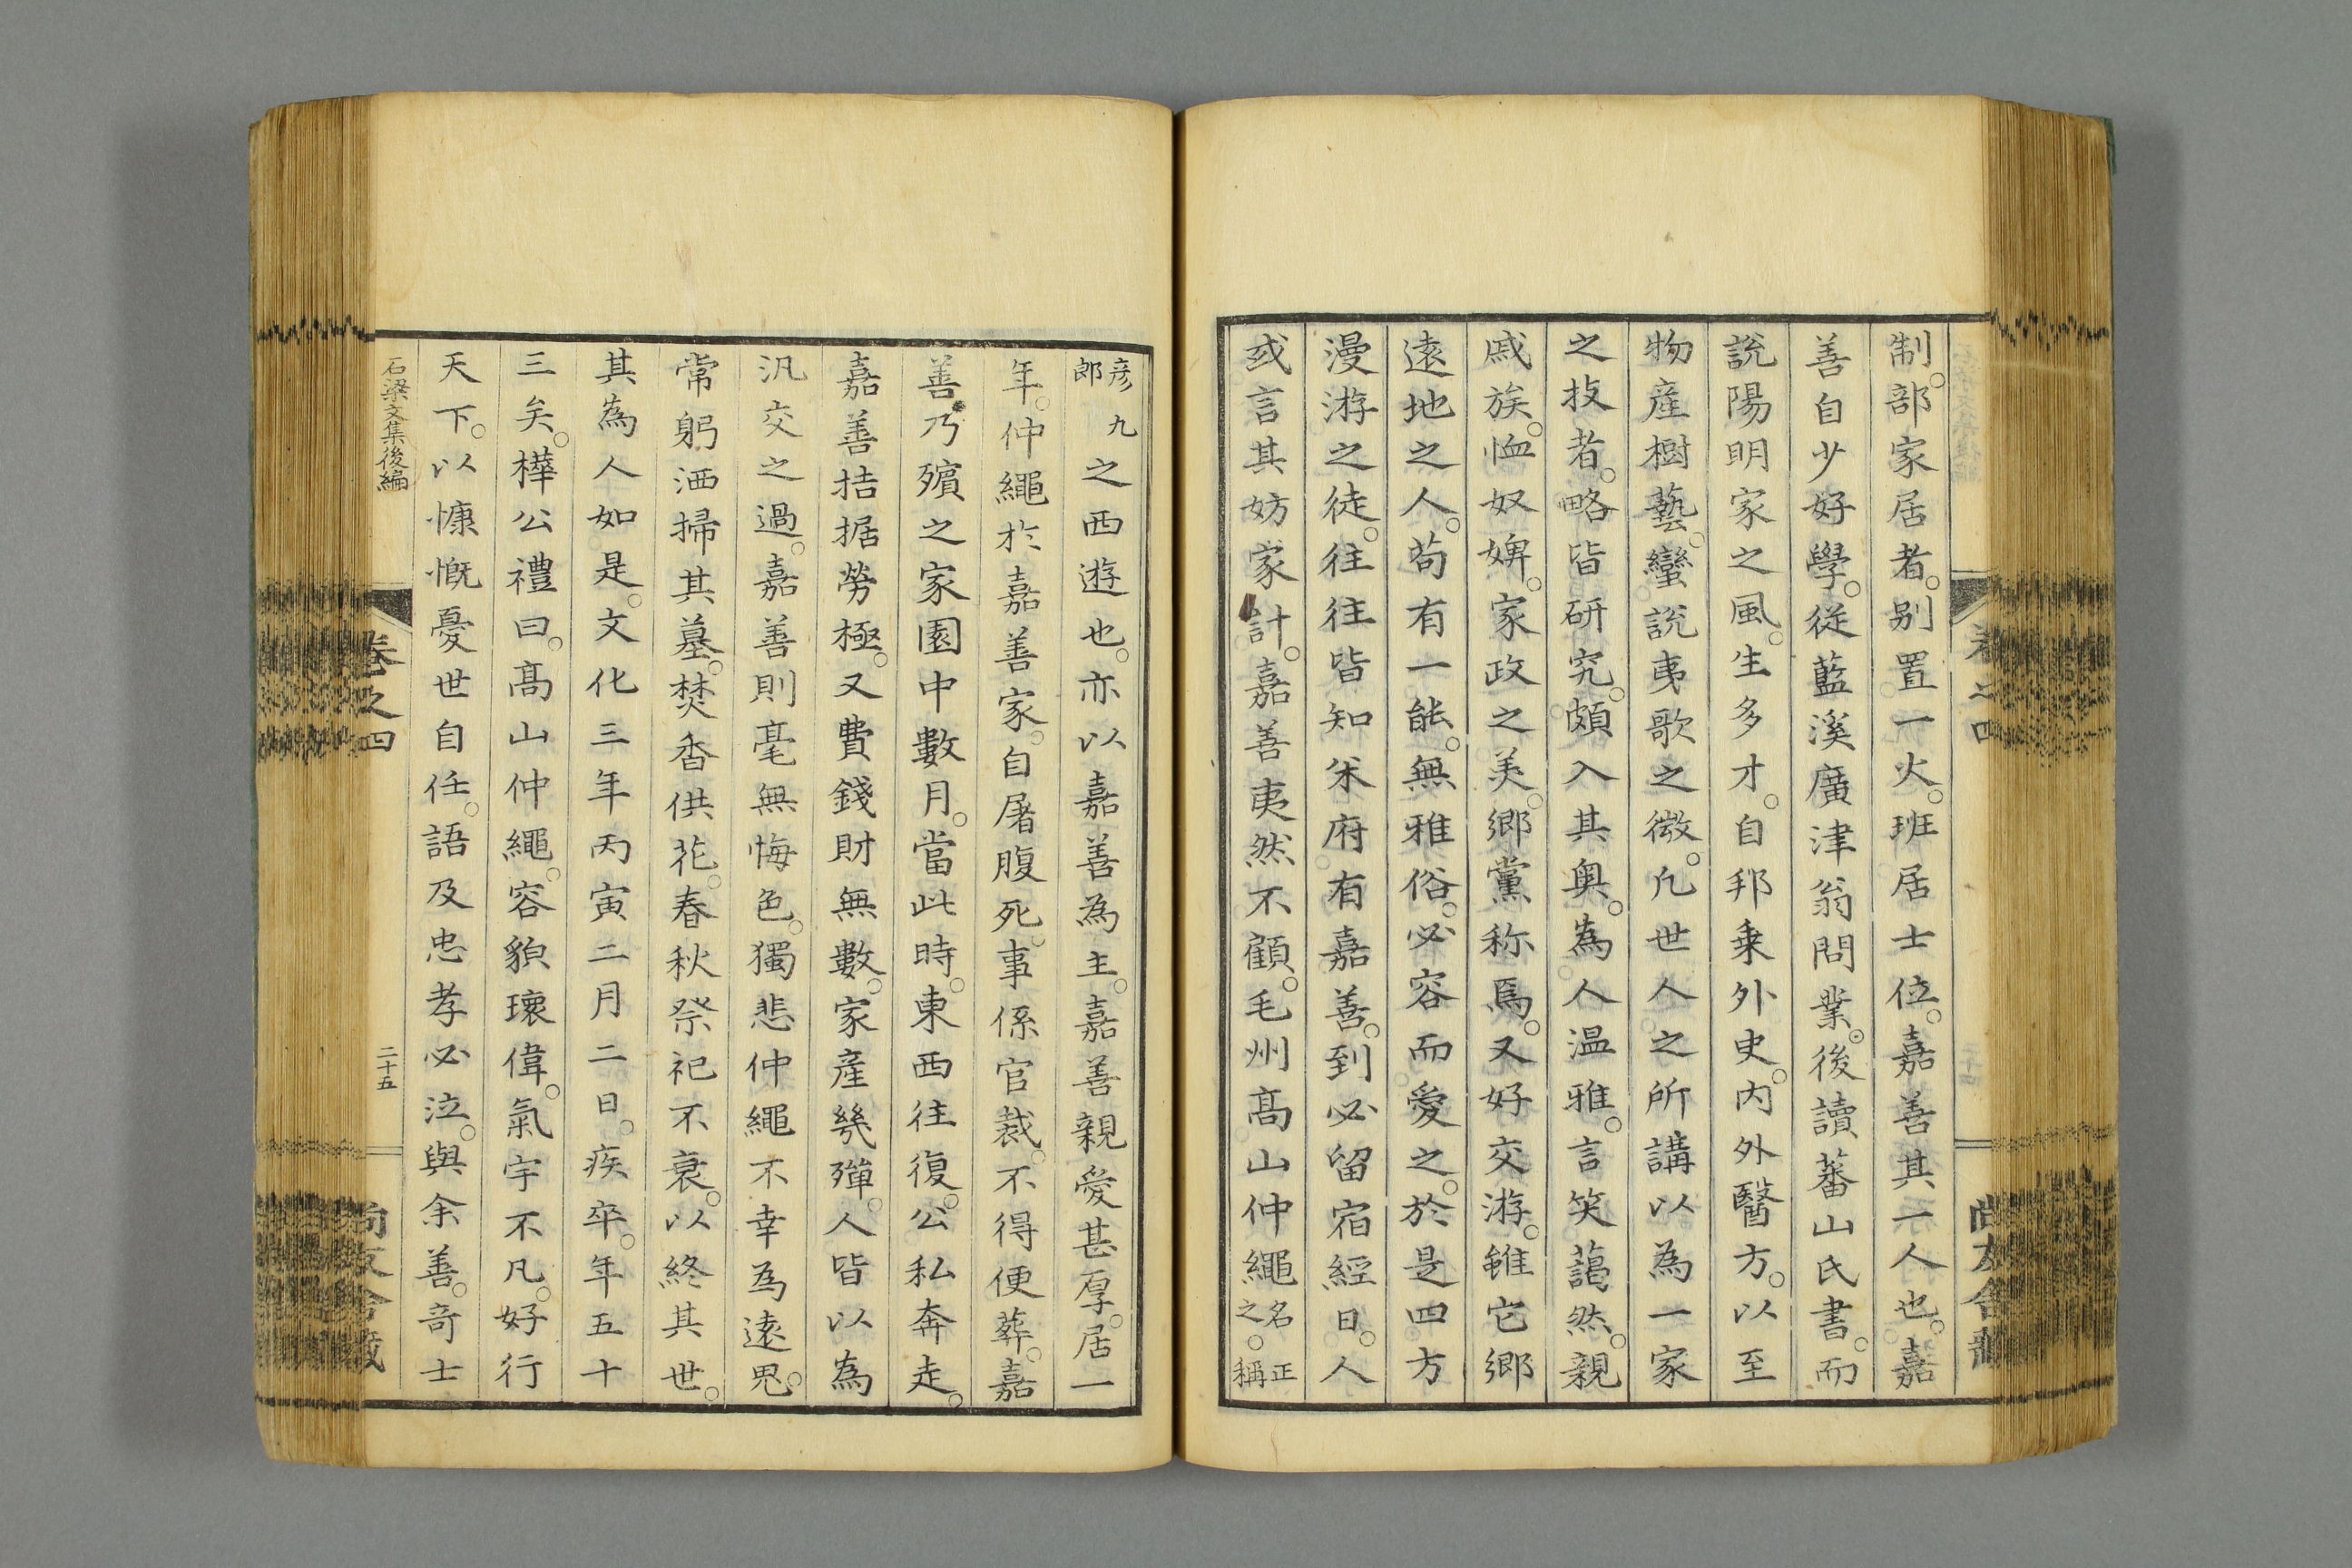 制。部家居者。別置一火。班居士位。嘉善其一人也。嘉
善自少好學。從藍溪廣津翁問業。後讀蕃山氏書。而
說陽明家之風。生多才。自邦乗外史。内外醫方。以至
物産樹藝。蠻說夷歌之微。凡世人之所講以為一家
之技者。略皆研究。頗入其奥。為人温雅。言笑藹然。親
戚族。恤奴婢。家政之美。鄉黨称焉。又好交游。雖它鄉
遠地之人。苟有一能。無雅俗。必容而愛之。於是四方
漫游之徒。往往皆知米府有嘉善。到必留宿經日。人
或言其妨家計。嘉善夷然不顧。毛州髙山仲繩名正之。稱
彦九郎之西遊也。亦以嘉善為主。嘉善親愛甚厚。居一
年。仲繩於嘉善家。自屠腹死。事係官裁。不得便葬。嘉
善乃殯之家園中數月。當此時。東西往復。公私奔走。
嘉善拮据勞極。又費錢財無數。家産幾殫。人皆以為
汎交之過。嘉善則毫無悔色。獨悲仲繩不幸為遠鬼。
常躬洒掃其墓。焚香供花。春秋祭祀不衰。以終其世。
其為人如是。文化三年丙寅二月二日。疾卒。年五十
三矣。樺公禮曰。髙山仲繩。容貌瓌偉。氣宇不凡。好行
天下。以慷慨憂世自任。語及忠孝必泣。與余善。竒士
石梁文集後編
卷之四
二十五
尚友舎藏